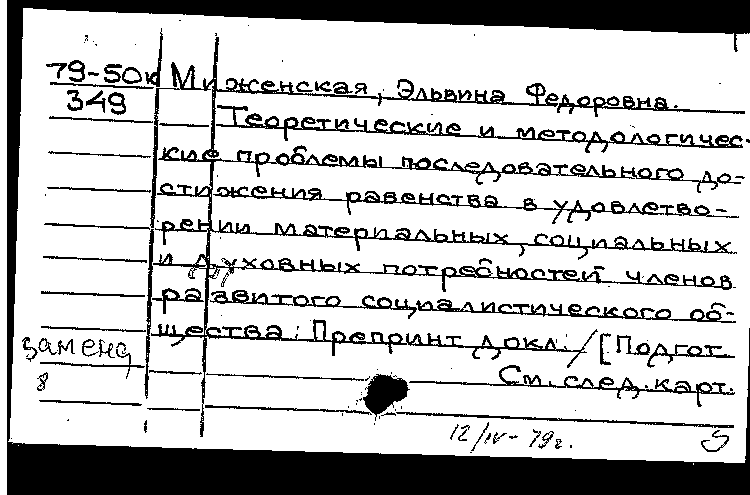 79-50к Миженская, Эльвина Федоровна.
349 Теоретические и методологичес-
кие проблемы последовательного до-
стижения равенства в удовлетво-
рении материальных, социальных
и духовных потребностей членов
развитого социалистического об-
щества: Препринт докл. / [Подгот.
замена
См. след. карт.
8
12/IV-79г.